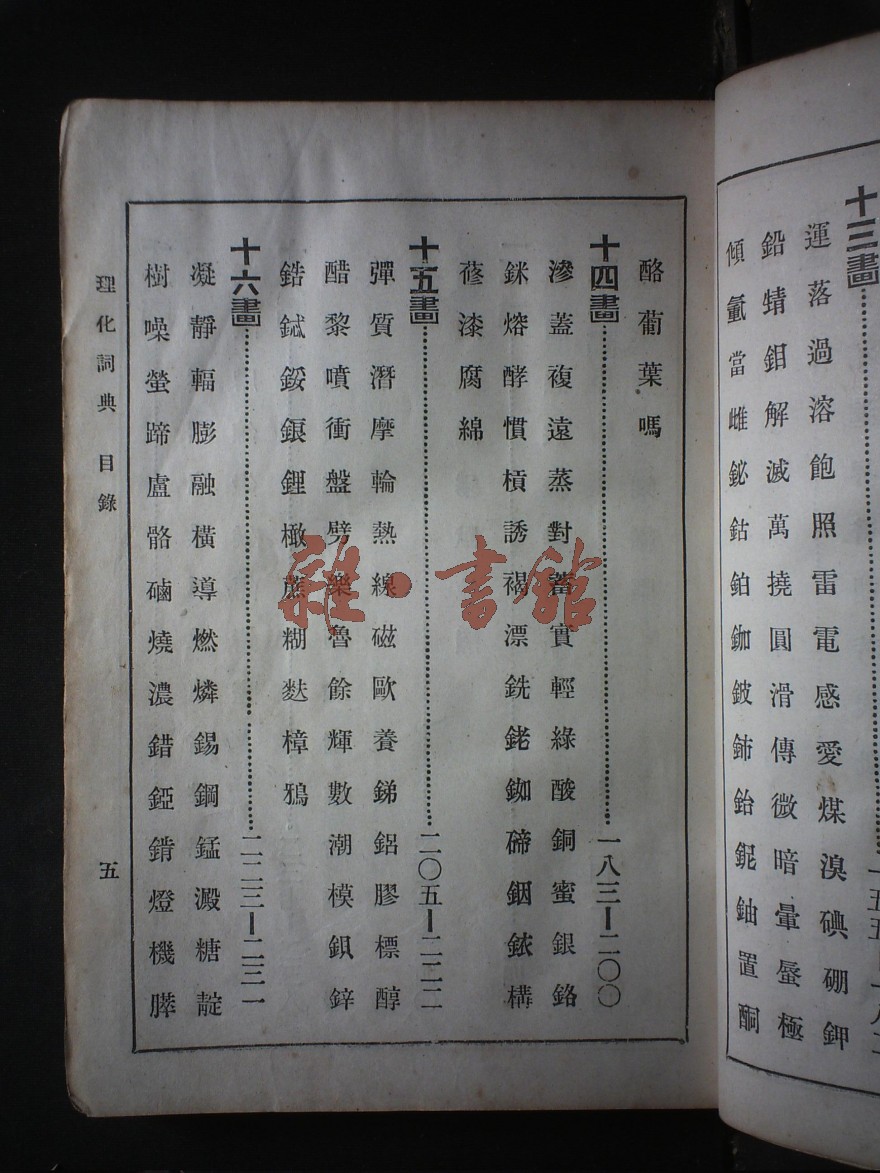 十三畫 一五五—一八二
運落過溶飽照雷電感愛煤溴碘硼鉀
鉛蜻鉬解滅萬撓圓滑傳微暗暈蜃極
傾氳當雌鉍鈷鉑鉫鈹鈰鈶鈮鈾置酮
酪葡葉嗎
十四畫 一八三—二〇〇
滲蓋複遠蒸對蓄實輕綠酸銅蜜銀鉻
銤熔酵慣槓誘褐漂銑銠銣碲銦銥構
蓚漆腐綿
十五畫 二〇五—二二二
彈質潛摩輪熱線磁歐養銻鋁膠標醇
醋黎噴衝盤劈樂魯餘輝數潮模鋇鋅
鋯鋱鋖鋃鋰橄蔗糊麩樟鴉
十六畫 二二三—二三一
凝靜輻膨融橫導燃燐錫鋼錳澱糖靛
樹噪螢蹄盧骼硇燒濃錯錏錆燈機膵
理化詞典 目錄 五
雜·書館